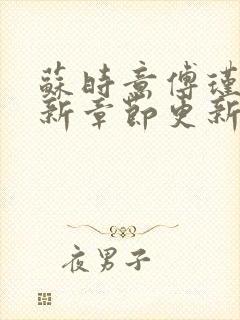 蘇時意傅瑾
新章節更新
夜男子